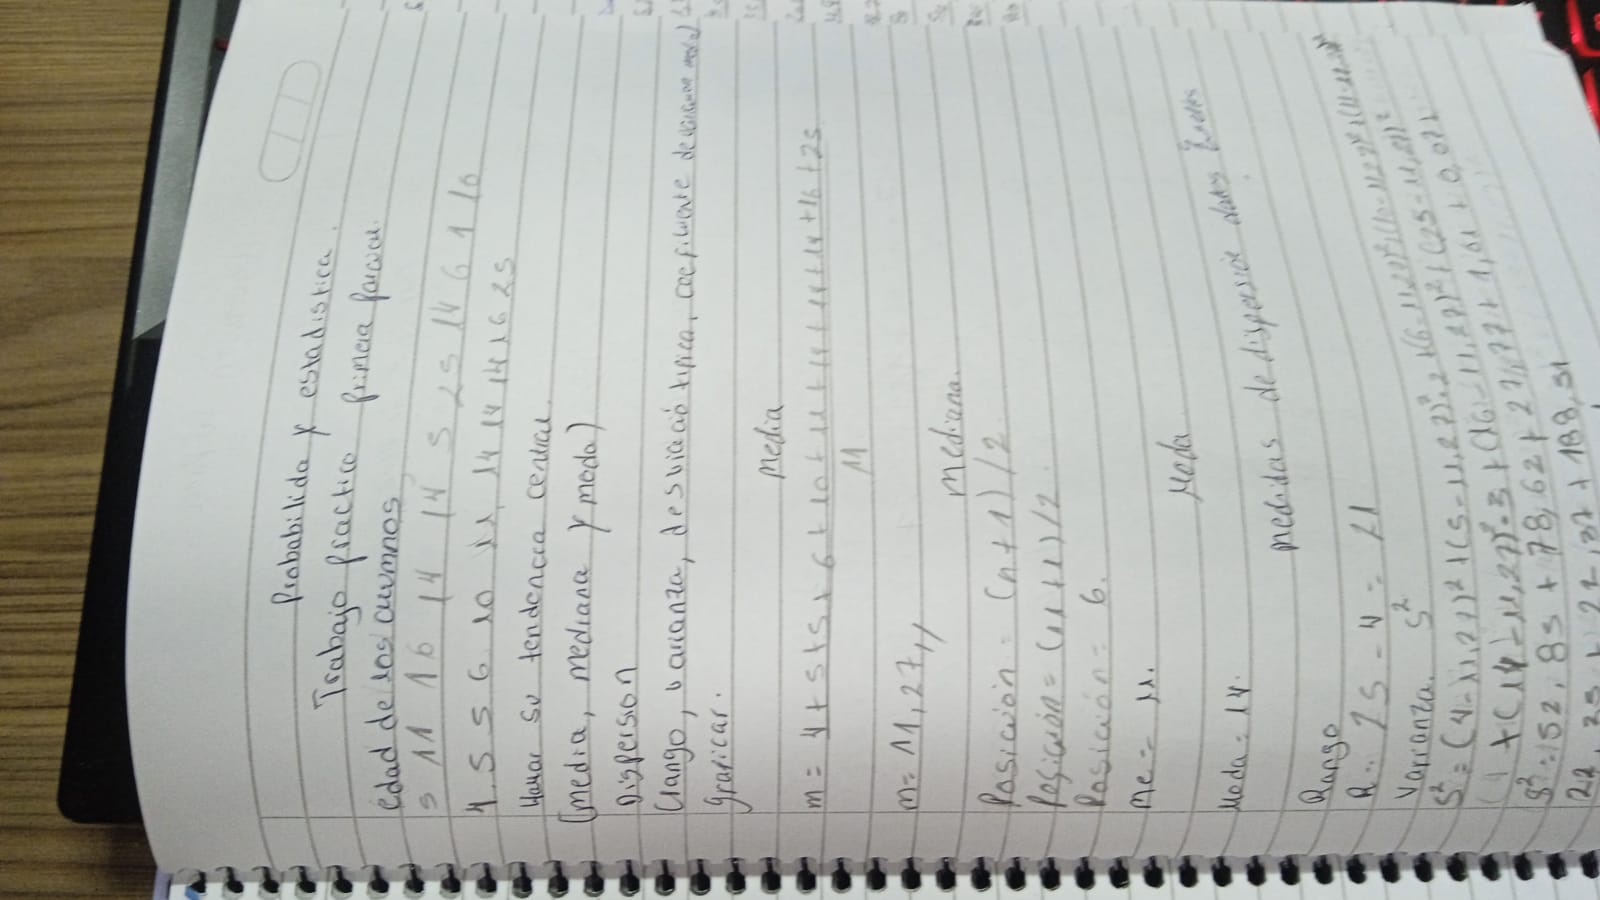 Probabilida y estadistica.
Trabajo practico primera parcial
edad de los alumnos
5 11 16 14 14 5 25 14 6 1 10
4 5 5 6 10 11 14 14 14 16 25
Hallar su tendencia central.
(media, mediana y moda)
Dispersion
(rango, varianza, desviació tipica, coeficiente de variacion media)
graficar.
media
m = 4 + 5 + 5 + 6 + 10 + 11 + 14 + 14 + 14 + 16 + 25
11
m = 11,27 //
mediana.
Posicion = (n + 1) / 2
Posicion = (11 + 1) / 2
Posicion = 6.
Me = 11.
Moda
Moda = 14.
medidas de dispersión datos
Rango
R = 25 - 4 = 21
Varianza. S²
S² = (4 - 11,27)² + (5 - 11,27)².2 + (6 - 11,27)² + (10 - 11,27)² + (11 - 11,27)²
+ (14 - 11,27)².3 + (16 - 11,27)² + (25 - 11,27)²
S² = 52,85 + 78,62 + 27,77 + 1,61 + 0,072
22,35 + 22,37 + 188,51